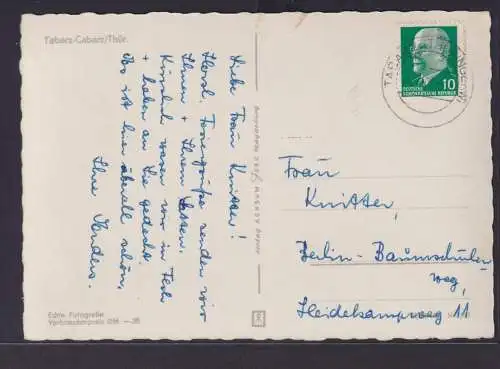 Tabarz-Cabarz/Thür.
Liebe Frau Knitter!
Herzl. Feriengrüße senden wir
Ihnen + Ihrem
Kürzlich waren wir in
+ haben an Sie gedacht.
Es ist hier überall schön,
Ihre
Echte Fotografie
10
DEUTSCHE
DEMOKRATISCHE REPUBLIK
Frau
Knitter,
Berlin-Baumschulen-
weg,
Heidekampweg 11